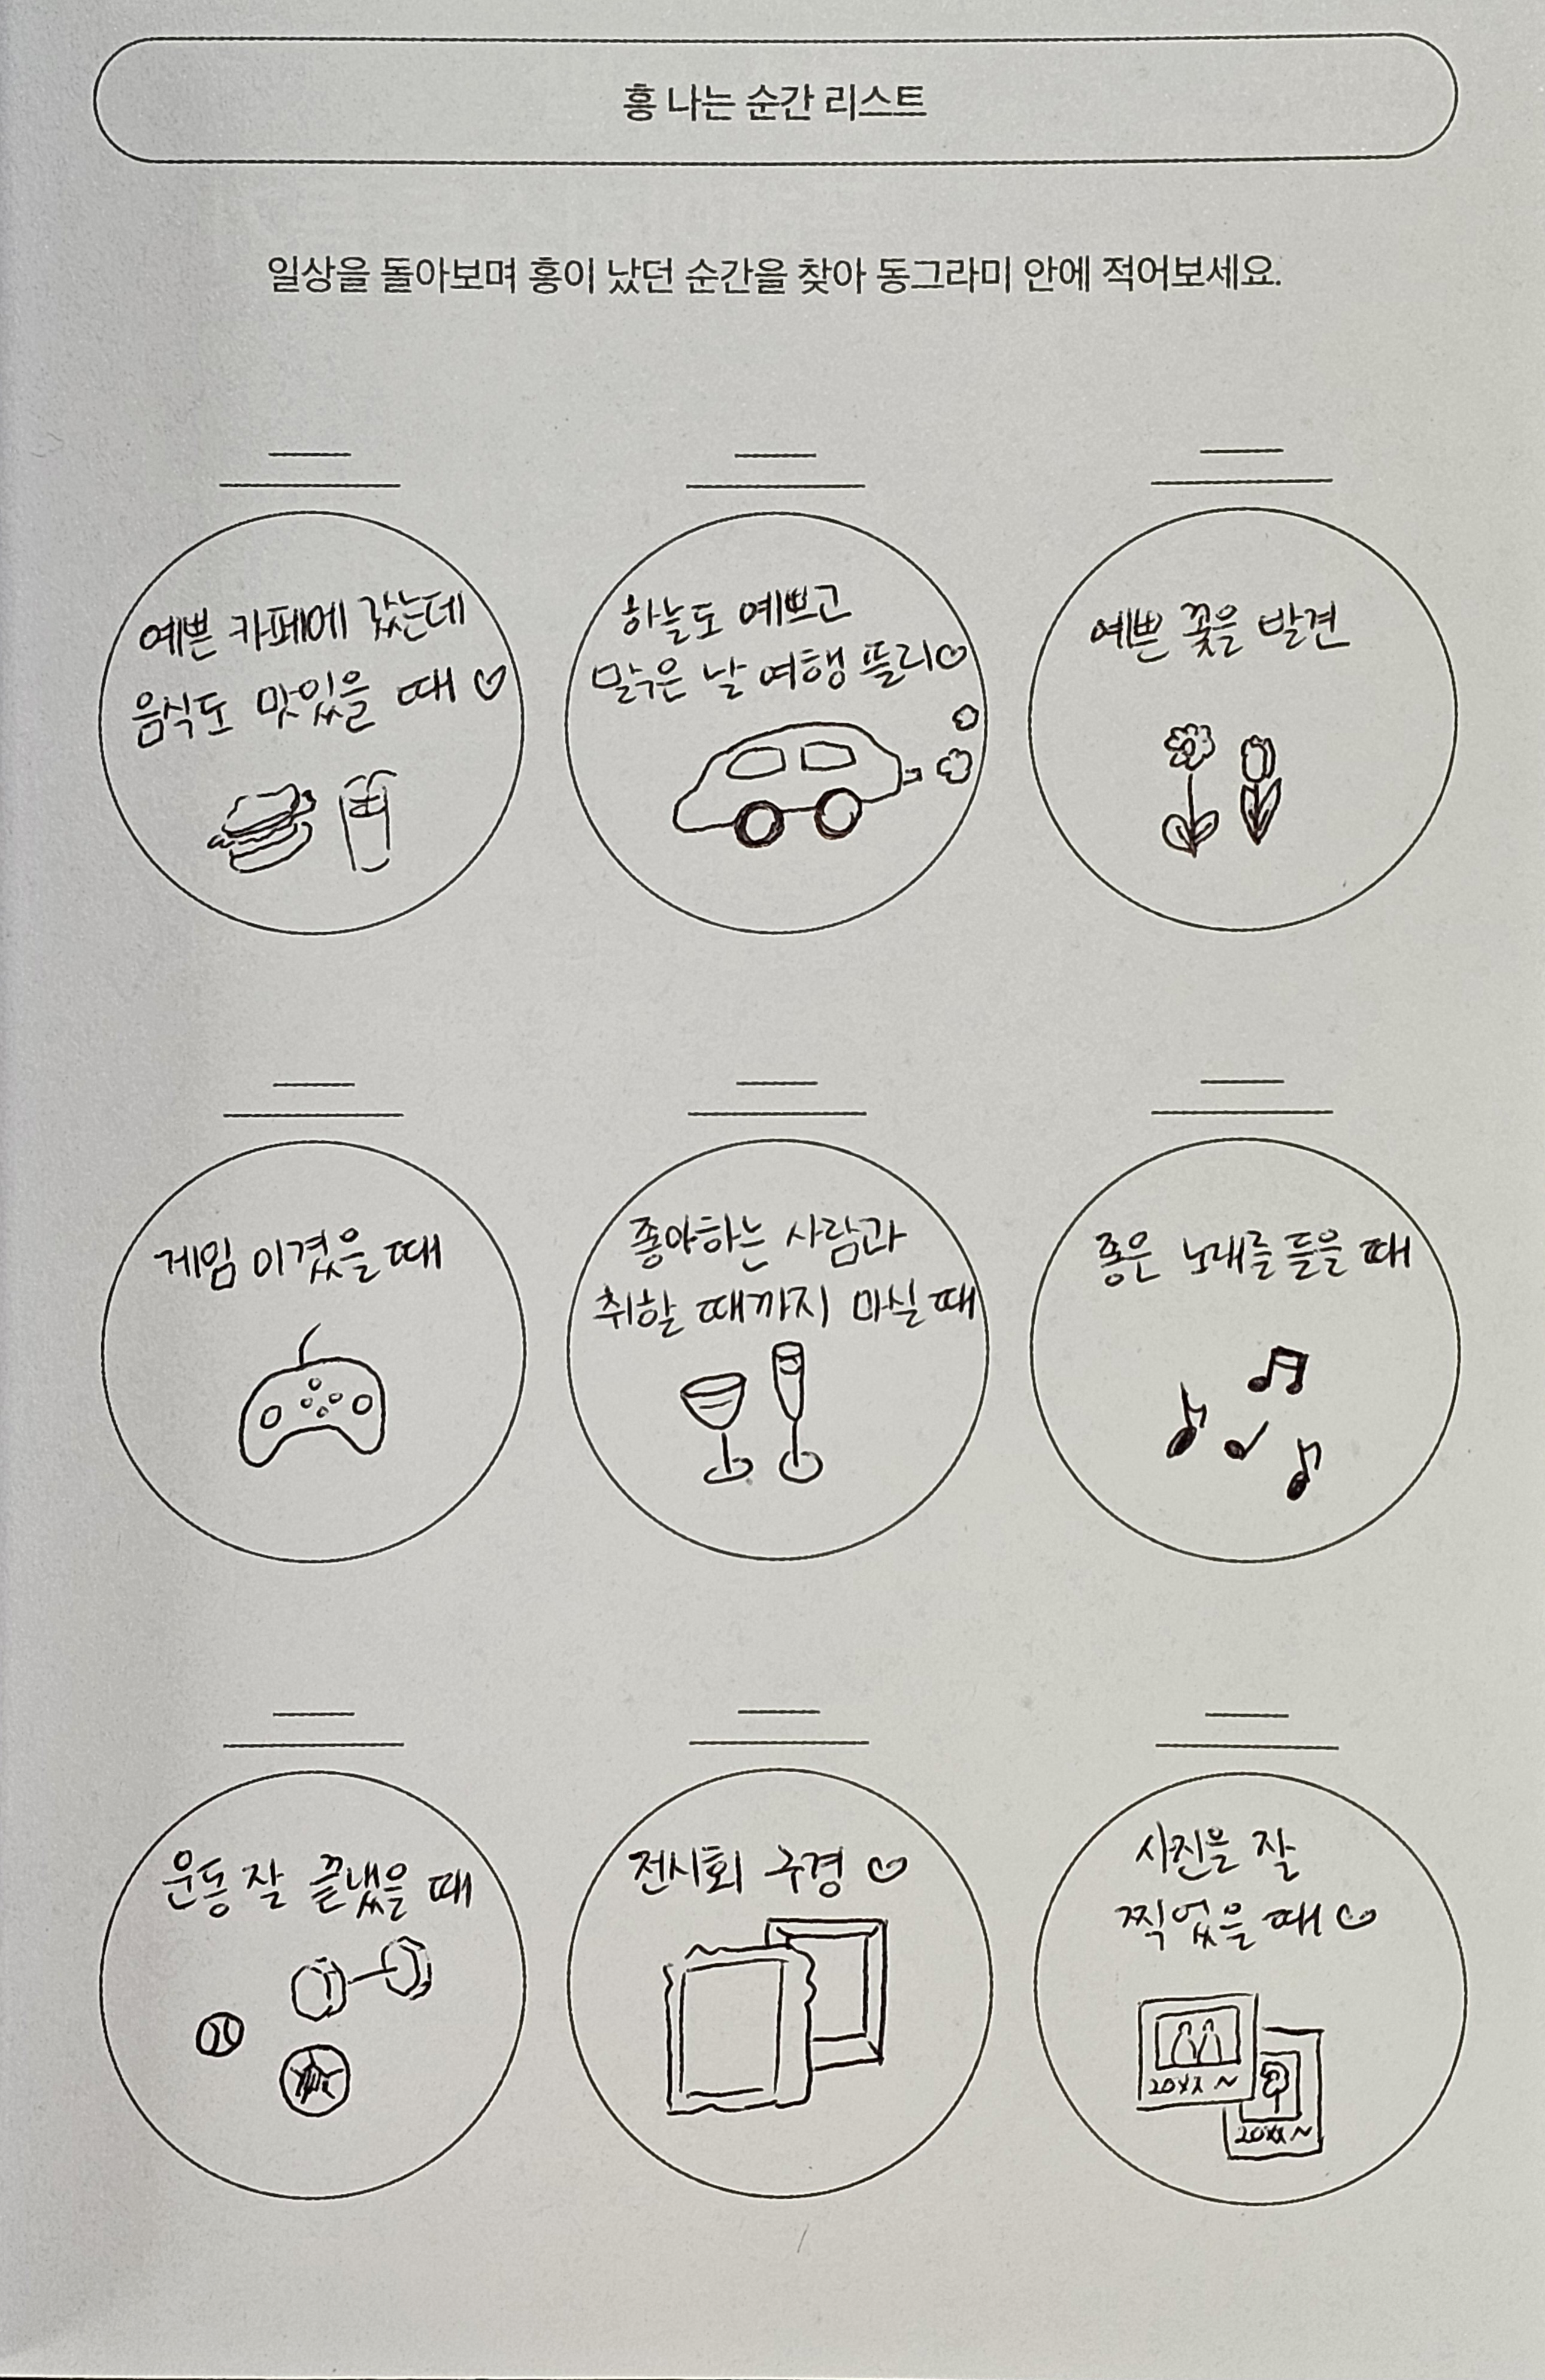 흥 나는 순간 리스트
일상을 돌아보며 흥이 났던 순간을 찾아 동그라미 안에 적어보세요.
예쁜 카페에 갔는데
음식도 맛있을 때 ♡
하늘도 예쁘고
맑은 날 여행 뜰리♡
예쁜 꽃을 발견
게임 이겼을 때
좋아하는 사람과
취할 때까지 마실 때
좋은 노래를 들을 때
운동 잘 끝냈을 때
전시회 구경 ♡
사진을 잘
찍었을 때 ♡
20XX ~
20XX ~